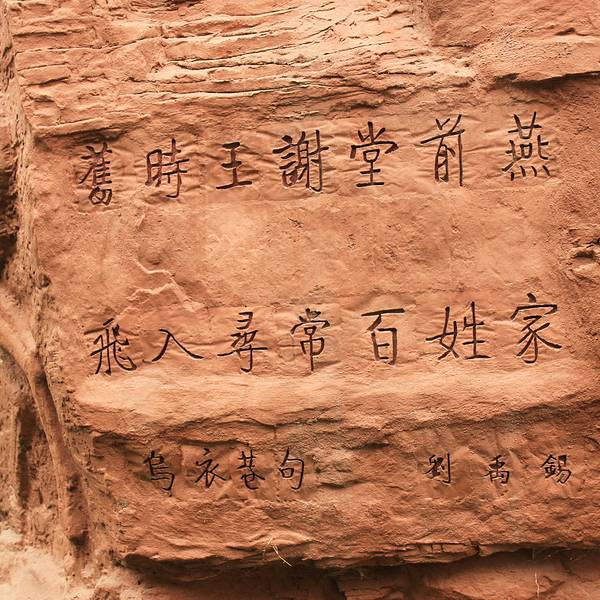 舊時王謝堂前燕
飛入尋常百姓家
烏衣巷句 劉禹錫